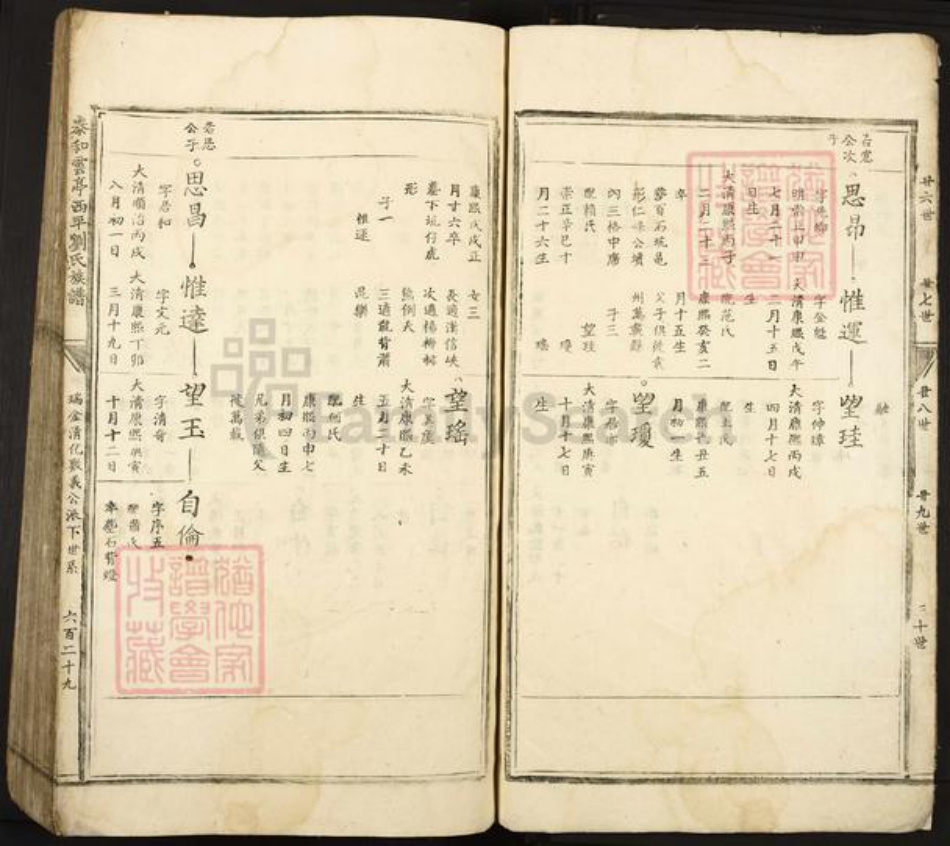 廿六世
廿七世
廿八世
廿九世
三十世
公次
子
思昂
惟運
望珪
融
明崇正甲申
七月二十一
日生
大清康熙丙子
二月二十三
卒
形仁峰公墳
內三格中席
配賴氏
崇正辛巳十
月二十六生
字金魁
大清康熙戊午
二月十五日
生
配范氏
康熙癸亥二
月十五生
父子俱徙袁
州萬載縣
子三
望珪
瓊
瑤
字仲璋
大清康熙丙戌
四月十七日
生
配王氏
康熙己丑五
月初一生
望瓊
大清康熙庚寅
十月十七日
生
康熙戊戌正
月十六卒
墓下坑仔虎
形
子一
惟逹
女三
長適漢信峽
次適楊梅樹
熊例天
三適龍背蕭
昆樂
望瑤
大清康熙乙未
五月二十日
生
配何氏
康熙丙申七
月初四日生
兄弟俱隨父
徙萬載
公子
思昌
惟逵
望玉
自倫
字君和
大清順治丙戌
八月初一日
字文元
大清康熙丁卯
三月十九日
字清奇
大清康熙庚寅
十月十二日
字序五
卒墓石背燈
泰和雲亭西平劉氏族譜
瑞金清化數義公派下世系
六百二十九
譜學會
收藏
Family Search